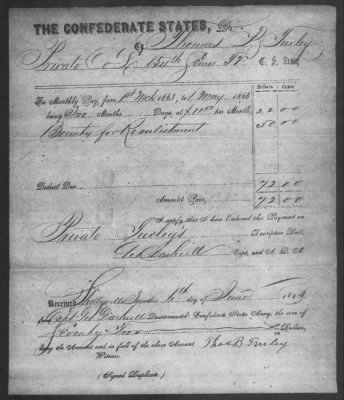 THE CONFEDERATE STATES, Dr.
To Thomas B Turley
Private Co
C. S. Army
Dollars Cents
For Monthly Pay, from 1st Mch 1863, to 1 May 1863
being Two Months Days, at $11.00 per Month 22.00
Bounty for Reenlistment 50.00
Deduct Due
Amount Paid, 72.00
I certify that I have Endorsed this Payment on
Private Turley's Descriptive Roll,
Capt. and A. Q. M.
Received Shelbyville 6th day of June 1863
from Capt Quartermaster Confederate States Army, the sum of
Seventy Two Dollars,
being the Amount and in full of the above Amount
Witness. Thos B Turley
(Signed Duplicate.)